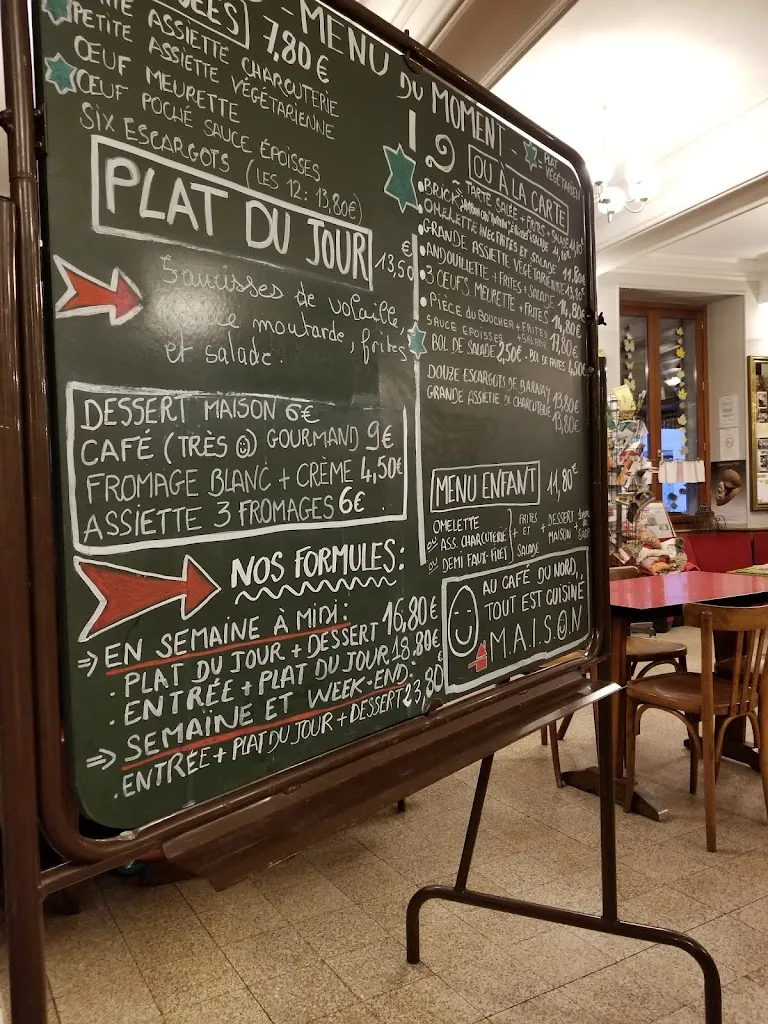 MENU DU MOMENT -
= PLAT VÉGÉTARIEN
7,80€
PETITE ASSIETTE CHARCUTERIE
PETITE ASSIETTE VÉGÉTARIENNE
ŒUF MEURETTE
ŒUF POCHÉ SAUCE ÉPOISSES
SIX ESCARGOTS (LES 12: 13,80€)
PLAT DU JOUR
13,50 €
Saucisses de volaille,
moutarde, frites
et salade.
DESSERT MAISON 6€
CAFÉ (TRÈS ☺) GOURMAND 9€
FROMAGE BLANC + CRÈME 4,50€
ASSIETTE 3 FROMAGES 6€
NOS FORMULES:
⇒ EN SEMAINE À MIDI:
. PLAT DU JOUR + DESSERT 16,80€
. ENTRÉE + PLAT DU JOUR 18,80€
⇒ SEMAINE ET WEEK-END:
. ENTRÉE + PLAT DU JOUR + DESSERT 23,80
OU À LA CARTE
TARTE SALÉE + FRITES + SALADE
• BRICK
• OMELETTE AVEC FRITES ET SALADE
• GRANDE ASSIETTE VÉGÉTARIENNE
• ANDOUILLETTE + FRITES + SALADE
• 3 ŒUFS MEURETTE + FRITES 14,80€
• PIÈCE DU BOUCHER + FRITES
SAUCE EPOISSES + SALADE 17,80€
BOL DE SALADE 2,50€ . BOL DE FRITES 4,50€
DOUZE ESCARGOTS DE 13,80€
GRANDE ASSIETTE DE CHARCUTERIE 13,80€
MENU ENFANT 11,80€
OMELETTE
OU ASS. CHARCUTERIE
OU DEMI FAUX-FILET
FRITES ET SALADE
+ DESSERT MAISON
AU CAFÉ DU NORD,
TOUT EST CUISINÉ
M.A.I.S.O.N